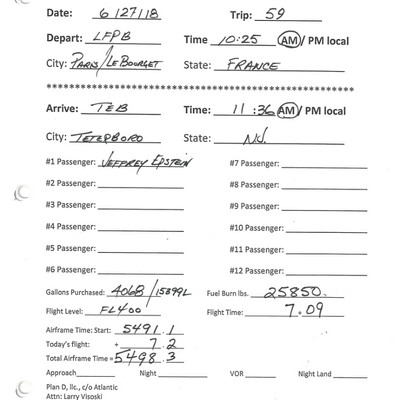 Date: 6/27/18 Trip: 59
Depart: LFPB Time 10:25 AM / PM local
City: PARIS/LE BOURGET State: FRANCE
************************************************
Arrive: TEB Time: 11:36 AM / PM local
City: TETERBORO State: NJ.
#1 Passenger: JEFFREY EPSTEIN #7 Passenger:
#2 Passenger: #8 Passenger:
#3 Passenger: #9 Passenger:
#4 Passenger: #10 Passenger:
#5 Passenger: #11 Passenger:
#6 Passenger: #12 Passenger:
Gallons Purchased: 4068/15399L Fuel Burn lbs. 25850.
Flight Level: FL400 Flight Time: 7.09
Airframe Time: Start: 5491.1
Today's flight: + 7.2
Total Airframe Time = 5498.3
Approach Night VOR Night Land
Plan D, llc., c/o Atlantic
Attn: Larry Visoski